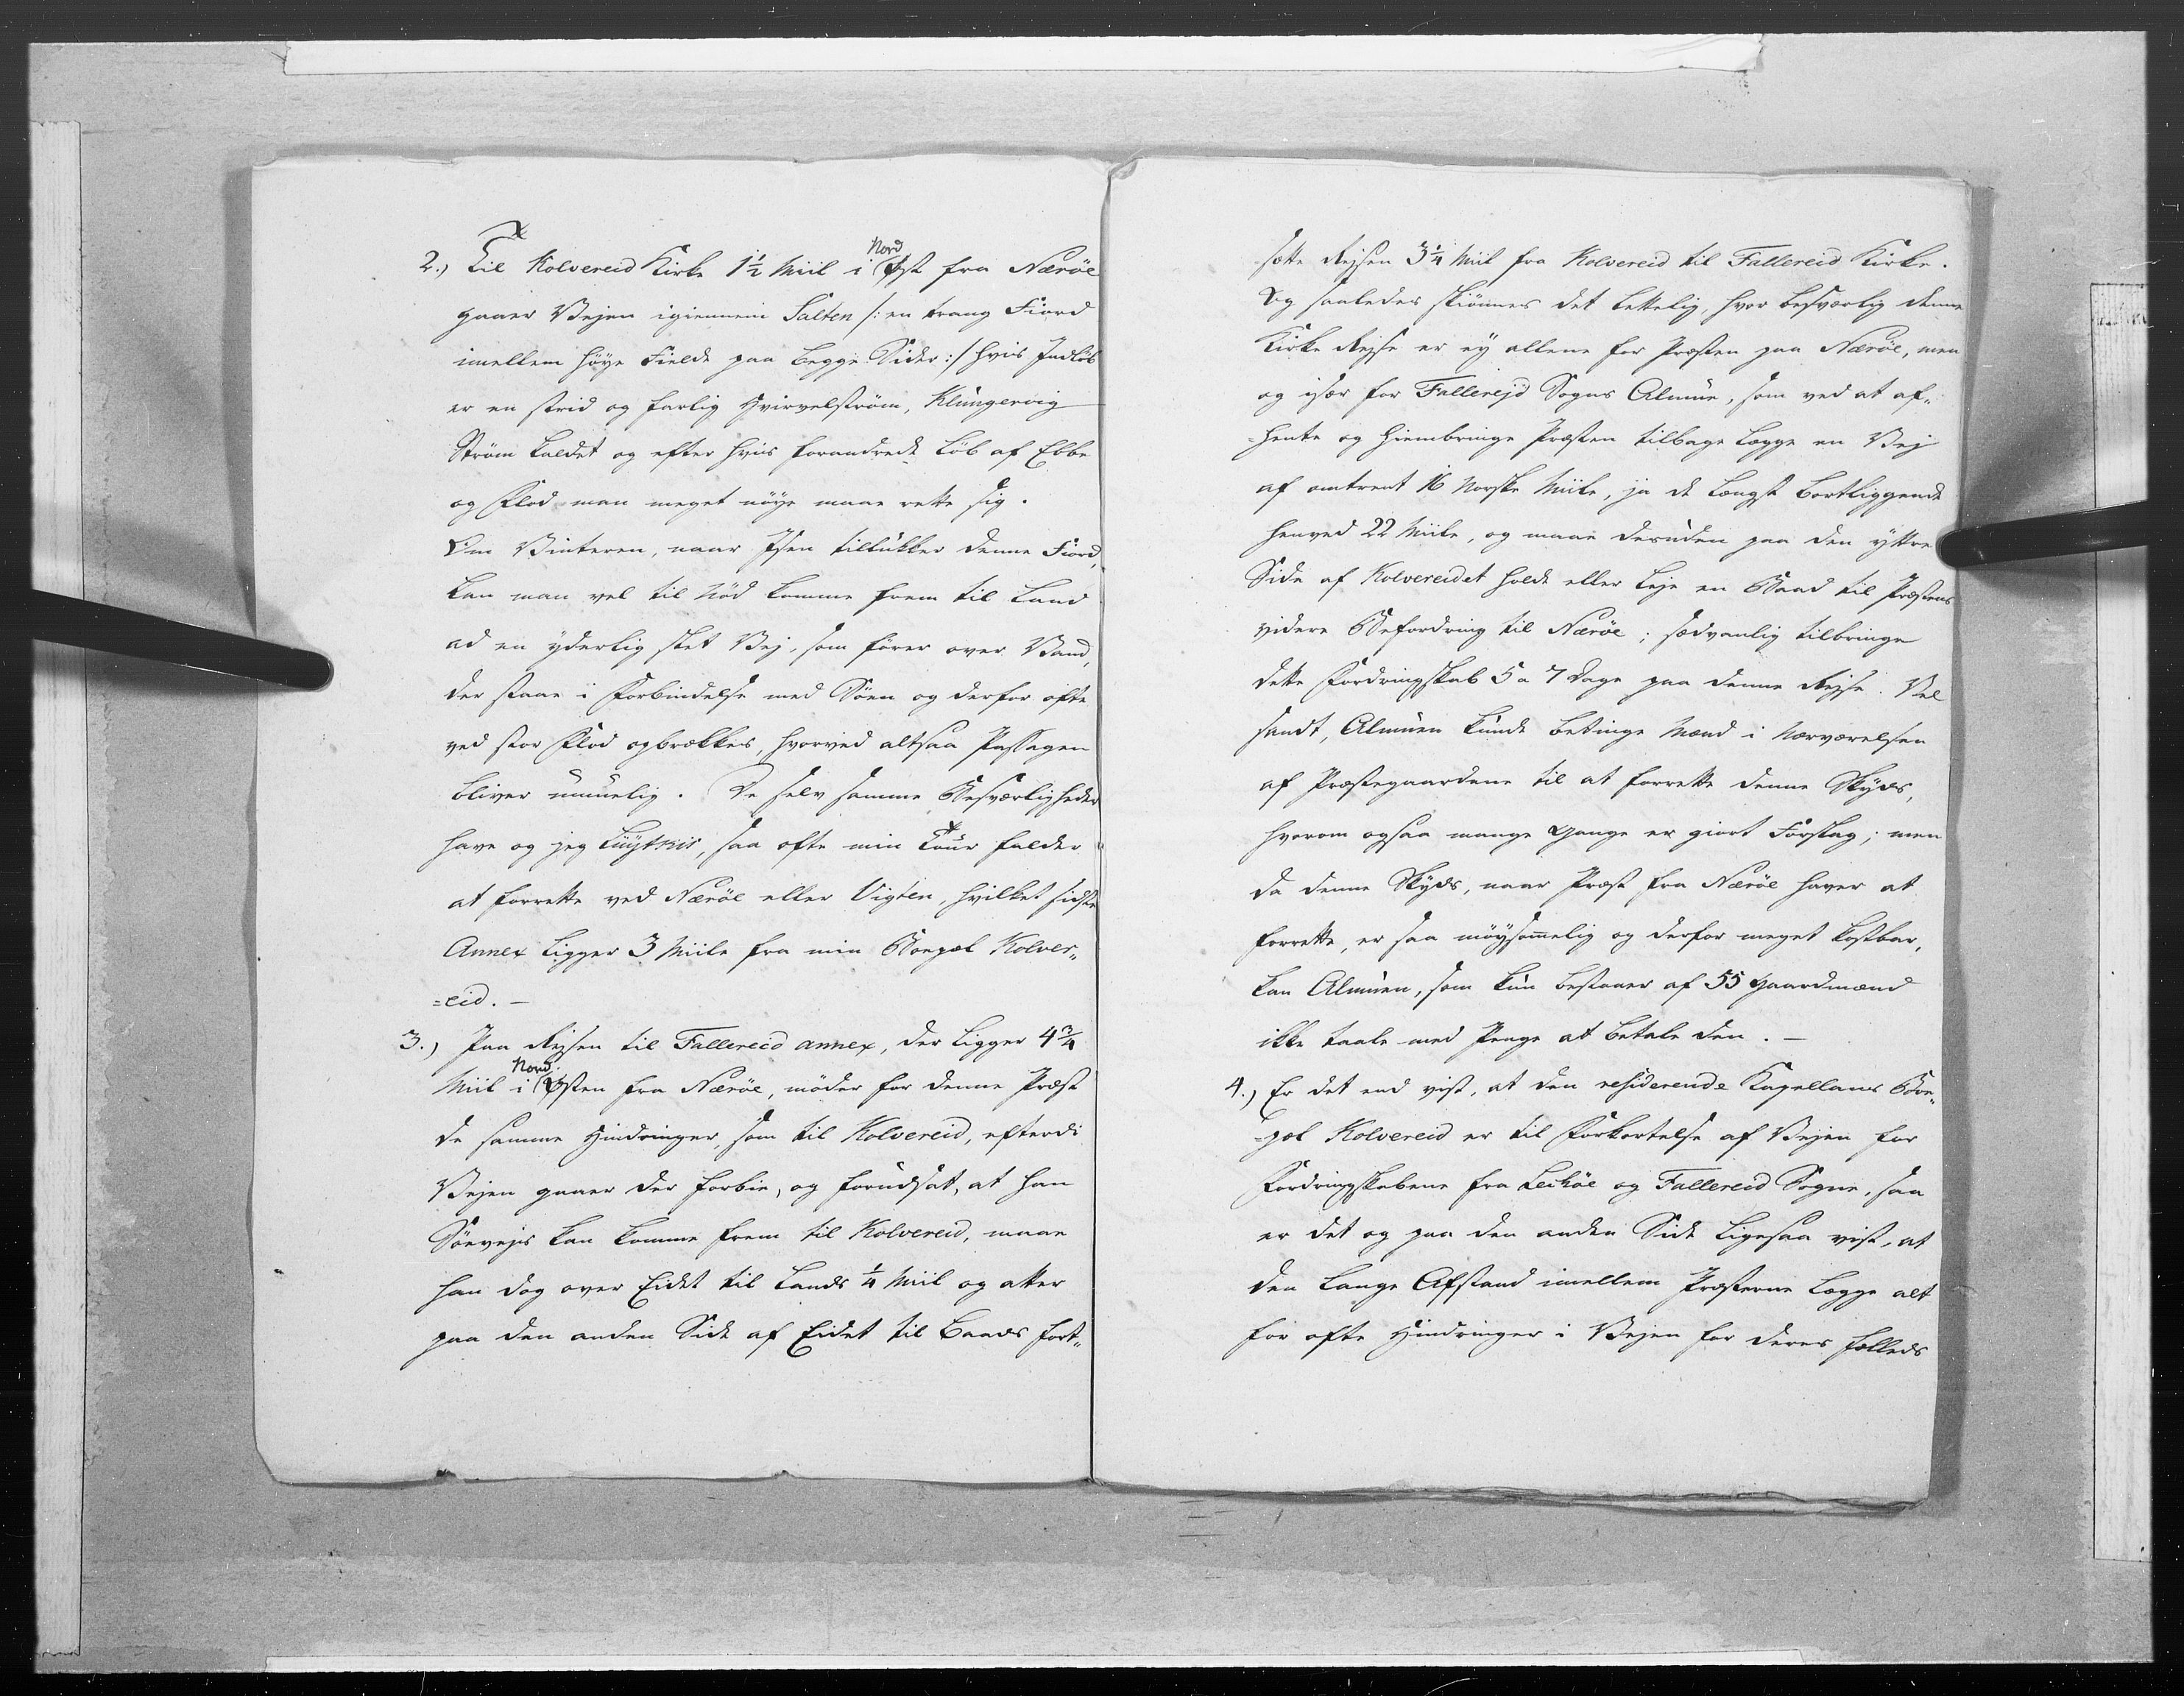 2.) Til Kolvereid Kirke 1½ Miil i Nord Øst fra Nærøe
gaaer Vejen igiennem Salten /: en trang Fiord
imellem høye Fielde paa begge Sider :/ hvis Indløb
er en strid og farlig Hvirvelstrøm, Klungervig
Strøm kaldet og efter hvis forandrede Løb af Ebbe
og Flod man meget nøye maae rette sig.
Om Vinteren, naar Isen tillukker denne Fiord,
kan man vel til Nød komme frem til Land
ad en yderlig slet Vej, som fører over Vand,
der staae i Forbindelse med Søen og derfor ofte
ved stor Flod opbrækkes, hvorved altsaa Passagen
bliver umuelig. De selv samme Besværligheder
have og jeg Luytkis, saa ofte min Tour falder
at forrette ved Nærøe eller Vigten, hvilket sidste
Annex ligger 3 Miile fra min Boepæl Kolver„
=eid. —
3.) Paa Rejsen til Fallereid annex, der ligger 4¾
Miil i Nord Østen fra Nærøe, møder for denne Præst
de samme Hindringer som til Kolvereid, efterdi
Vejen gaaer der forbie, og forudsat, at han
Søevejs kan komme frem til Kolvereid, maae
han dog over Eidet til Lands ¼ Miil og atter
paa den anden Side af Eidet til Baads fort„
sætte Rejsen 3¼ Miil fra Kolvereid til Fallereid Kirke.
Og saaledes skiønnes det lettelig, hvor besværlig denne
Kirke Rejse er ey allene for Præsten paa Nærøe, men
og især for Fallerejd Sogns Almue, som ved at af„
=hente og hiembringe Præsten tilbage lægge en Vej
af omtrent 16 Norske Miile, ja de længst bortliggende
henved 22 Miile, og maae desuden paa den yttre
Side af Kolvereidet holde eller leje en Baad til Præstens
videre Befordring til Nærøe; sædvanlig tilbringe
dette Fordringskab 5 a 7 Dage paa denne Rejse. Vel
sandt, Almuen kunde betinge Mænd i Nærværelsen
af Præstegaardene til at forrette denne Skyds,
hvorom ogsaa mange Gange er giort Forslag; men
da denne Skyds, naar Præst fra Nærøe haver at
forrette, er saa møysommelig og derfor meget kostbar,
kan Almuen, som kun bestaaer af 55 Gaardmænd
ikke taale med Penge at betale den. —
4.) Er det end vist, at den residerende Kapellans Boe„
=pæl Kolvereid er til Forkortelse af Vejen for
Fordringskabene fra Leckøe og Fallereid Sogne, saa
er det og paa den anden Side ligesaa vist, at
den lange Afstand imellem Præsterne lægge alt
for ofte Hindringer i Vejen for deres fælleds